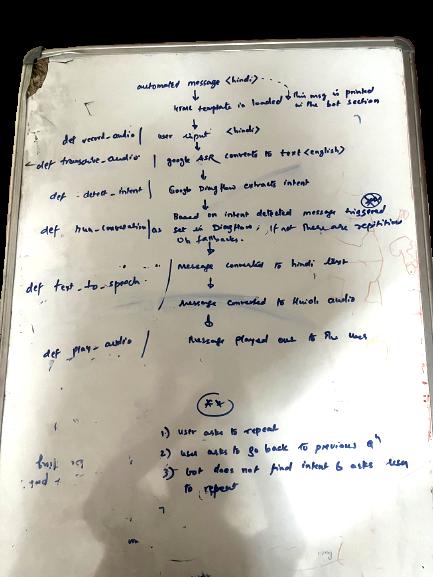 automated message <hindi>
HTML template is loaded
This msg is printed
in the bot section
def record_audio | user input <hindi>
def transcribe_audio | google ASR converts to text <english>
def detect_intent | Google Diagflow extracts intent
**
def run_conversation | Based on intent detected message triggered
as set in Diagflow, if not there are repititions
Or fallbacks.
message converted to hindi text
def text_to_speech /
message converted to Hindi audio
def play_audio / message played out to the user
**
1.) user asks to repeat
2) user asks to go back to previous Qn
3) bot does not find intent & asks user
to repeat